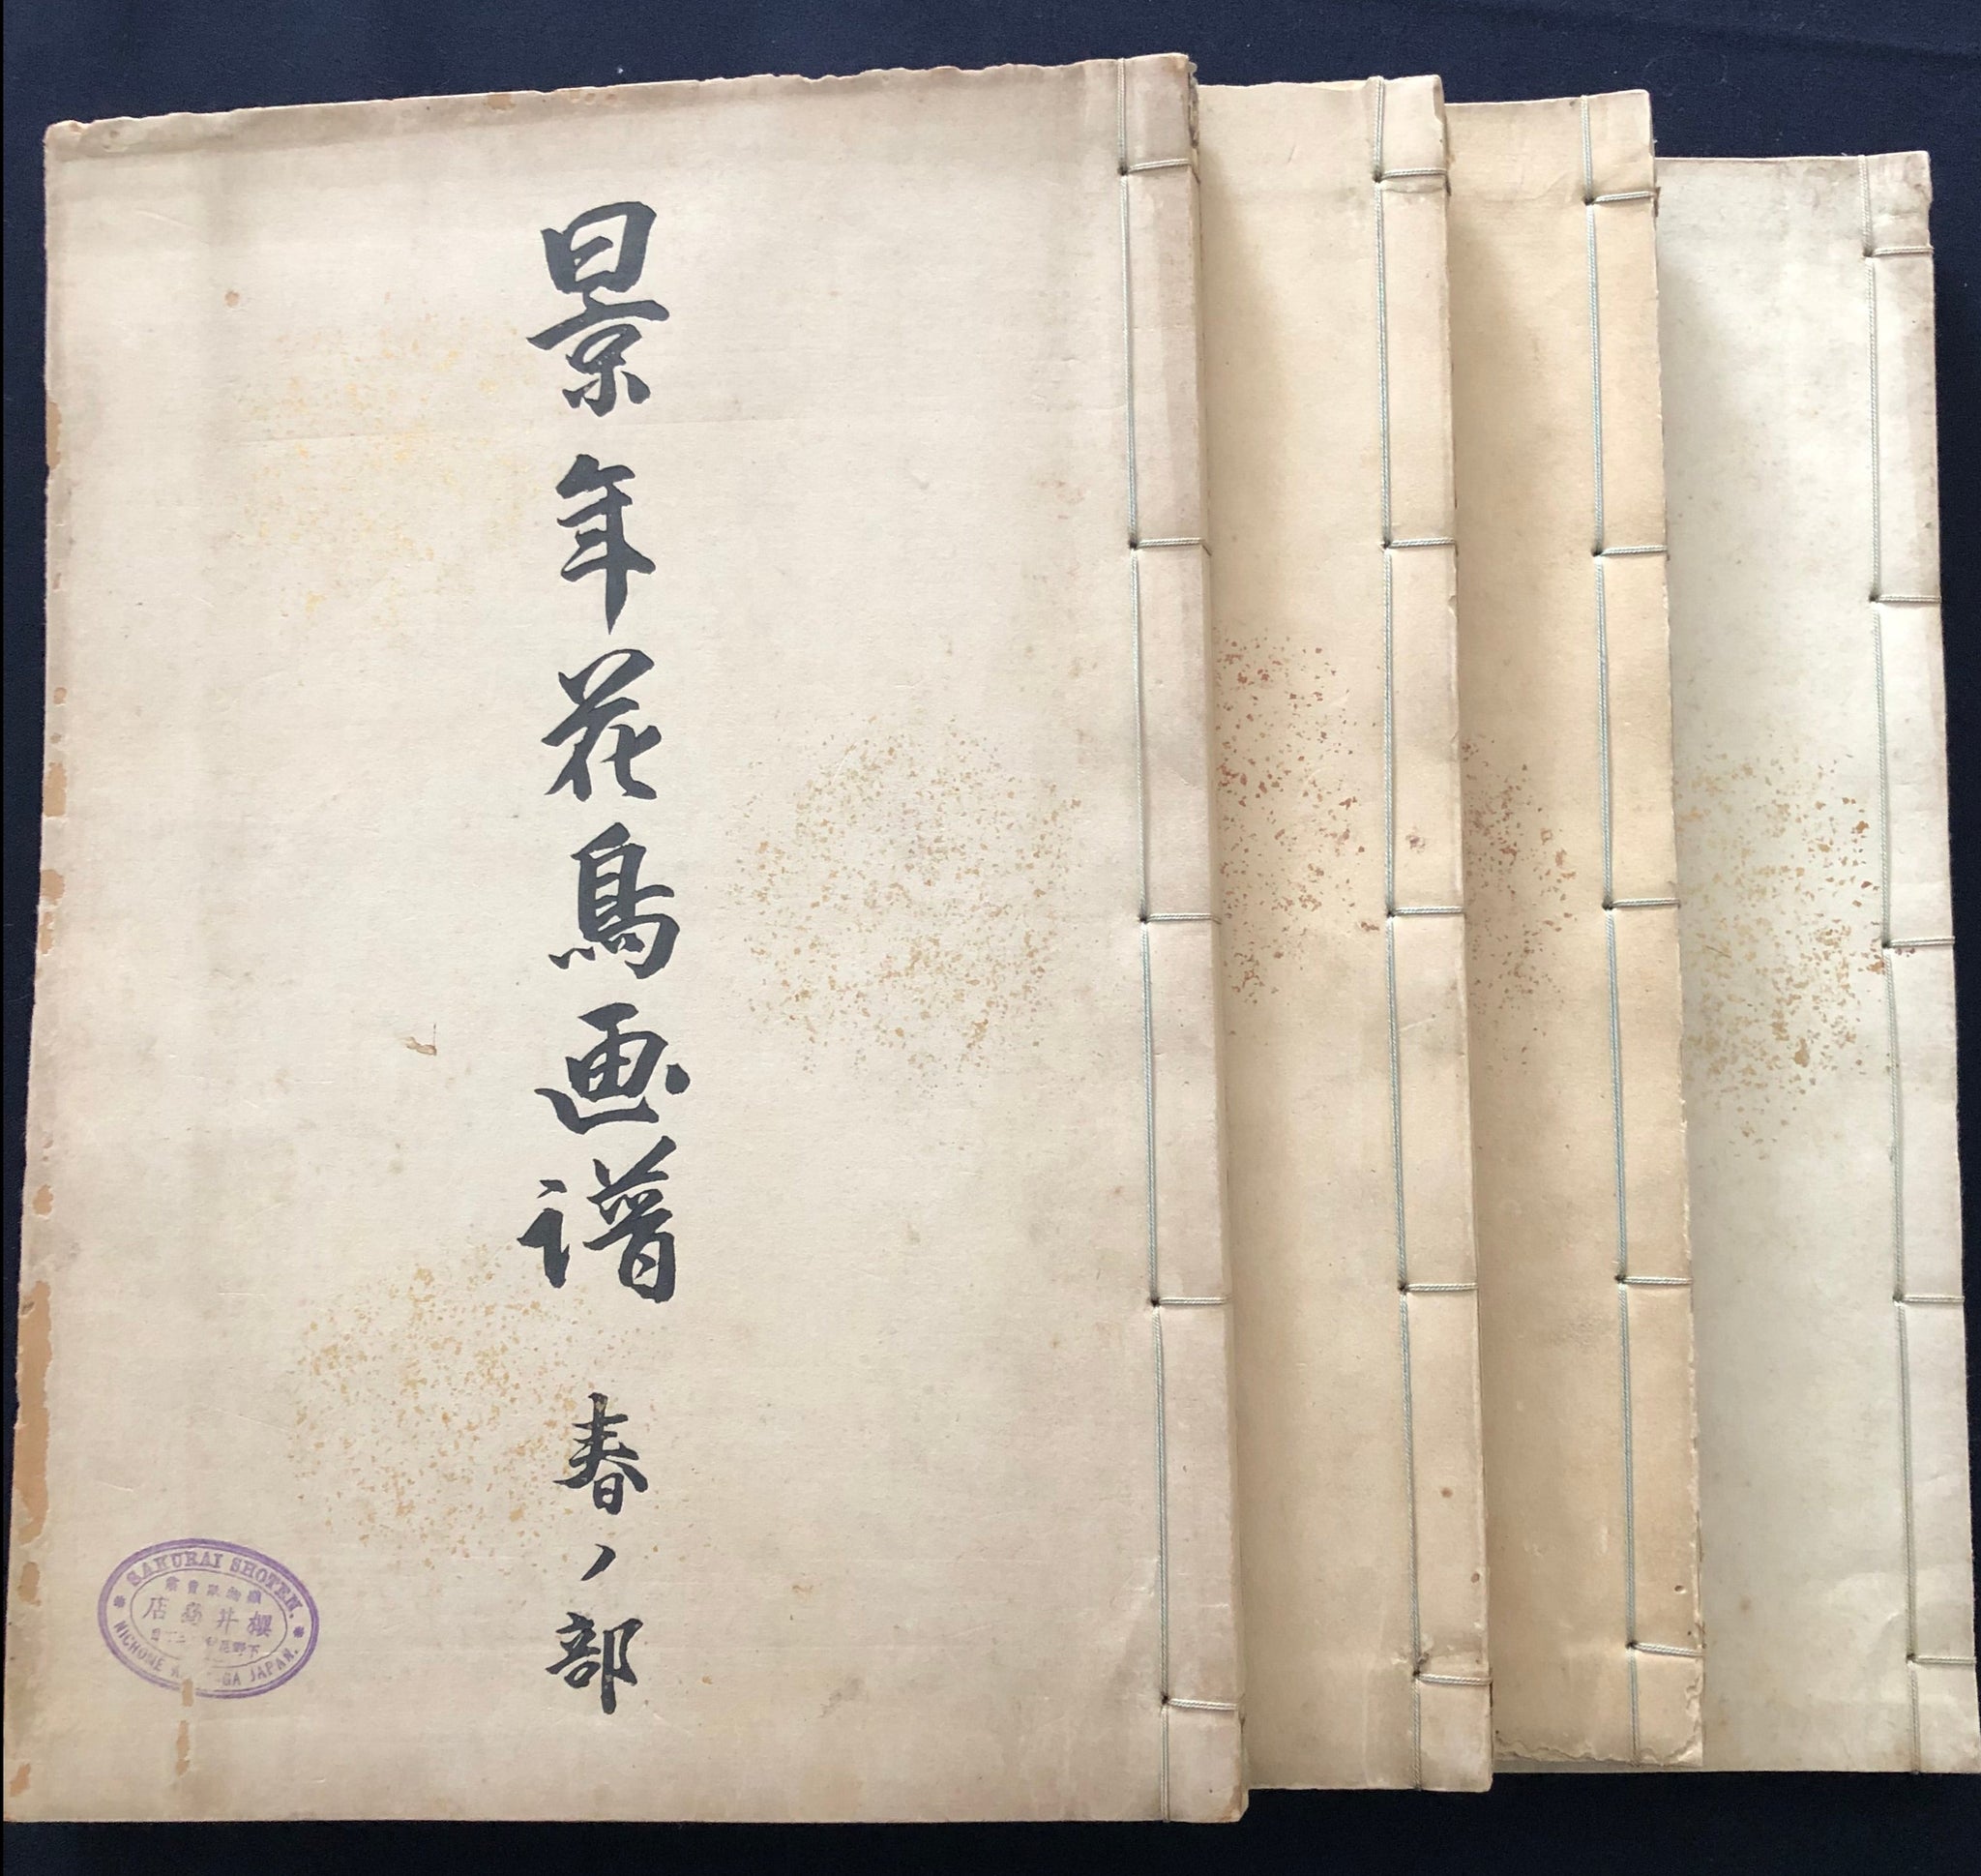 景年花鳥画譜
春ノ部
SAKURAI SHOTEN.
櫻井商店
NICHOME JAPAN.